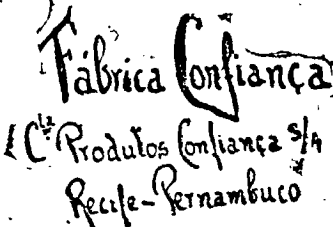 Fábrica Confiança
Cia Produtos Confiança S/A
Recife-Pernambuco